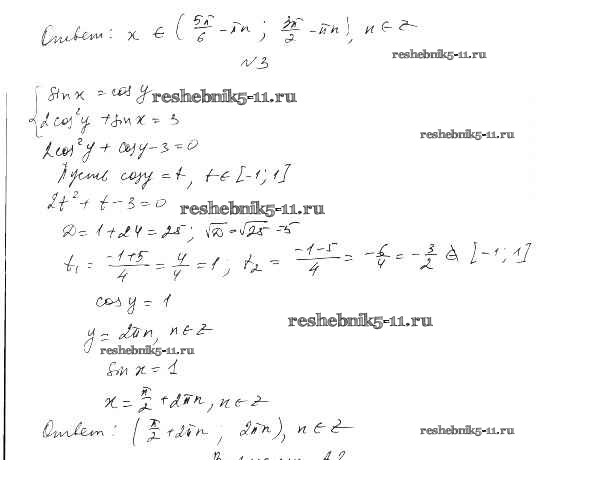 Ответ: x ∈ (5π/6 - πn ; 3π/2 - πn), n ∈ Z
reshebnik5-11.ru
N3
{ sin x = cos y
reshebnik5-11.ru
2cos²y + sin x = 3
reshebnik5-11.ru
2cos²y + cos y - 3 = 0
Пусть cos y = t, t ∈ [-1; 1]
2t² + t - 3 = 0
reshebnik5-11.ru
D = 1 + 24 = 25; √D = √25 = 5
t₁ = (-1+5)/4 = 4/4 = 1; t₂ = (-1-5)/4 = -6/4 = -3/2 ∉ [-1; 1]
cos y = 1
reshebnik5-11.ru
y = 2πn, n ∈ Z
reshebnik5-11.ru
sin x = 1
x = π/2 + 2πn, n ∈ Z
Ответ: (π/2 + 2πn ; 2πn), n ∈ Z
reshebnik5-11.ru